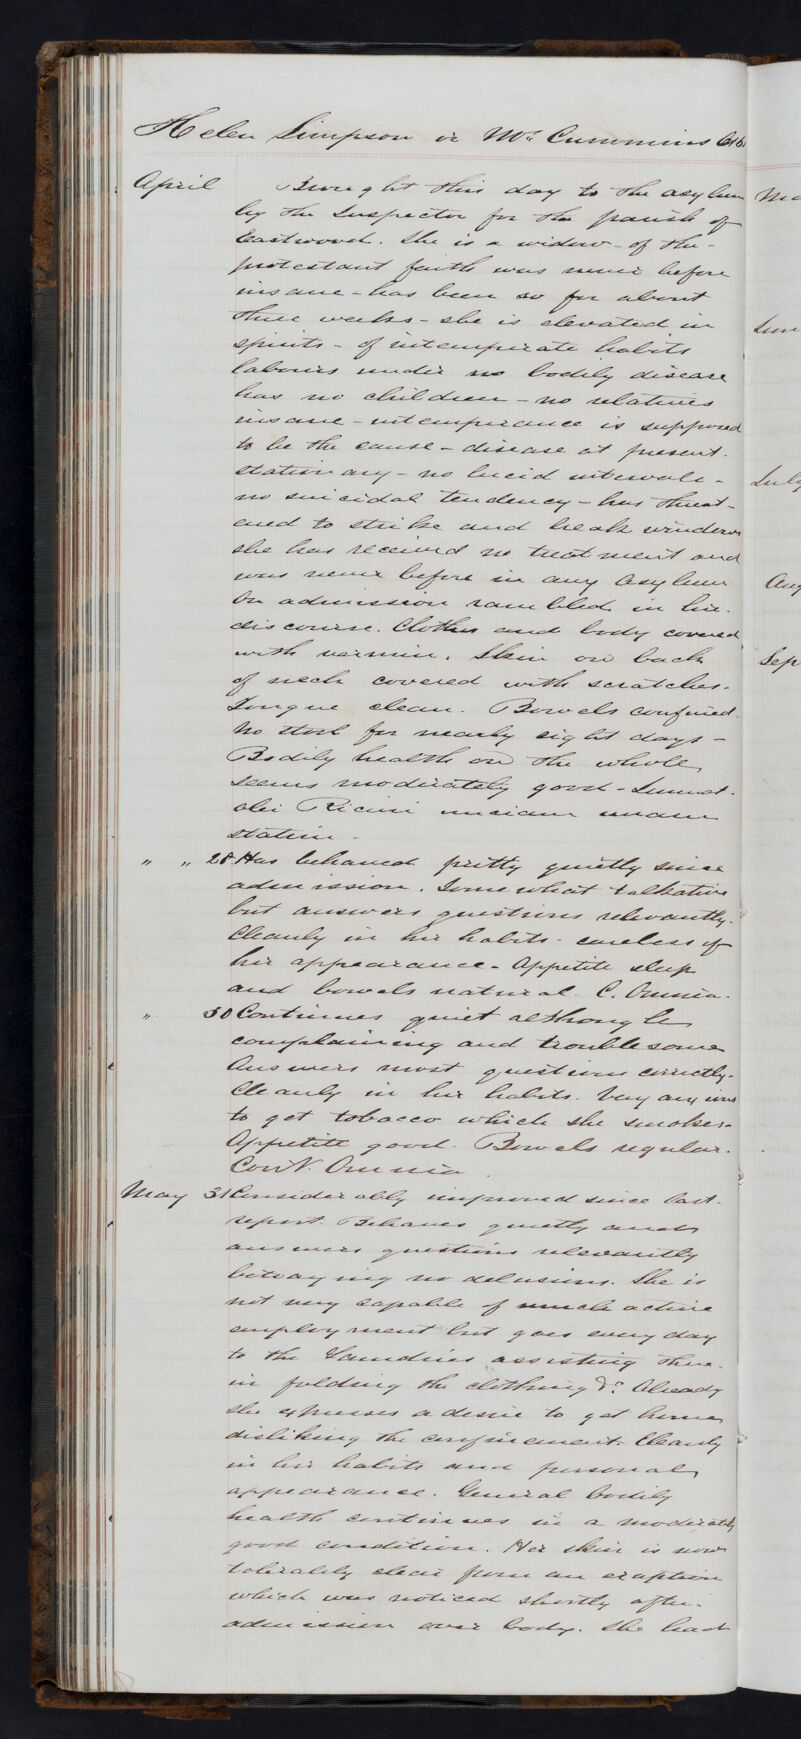 Helen Simpson or Mrs Cummins 616
April Brought this day to the asylum
by the Inspector for the parish of
Eastwood. She is a widow - of the
protestant faith was never before
insane - has been so for about
three weeks - she is elevated in
spirits - of intemperate habits
labours under no bodily disease
has no children - no relatives
insane - intemperance is supposed
to be the cause - disease at present
stationary - no lucid intervals -
no suicidal tendency - has threat-
ened to strike and break windows
she has received no treatment and
was never before in any Asylum
On admission rambled in her
discourse. Clothes and body covered
with vermin. Skin on back
of neck covered with scratches.
Tongue clean. Bowels confined.
No stool for nearly eight days -
Bodily health on the whole
seems moderately good - Sumat.
olei Ricini unciam unam
statim -
" " 28 Has behaved pretty quietly since
admission. Somewhat talkative
but answers questions relevantly.
Cleanly in her habits - careless of
her appearance - Appetite sleep
and bowels natural. C. Omnia.
" 30 Continues quiet although
complaining and troublesome
Answers most questions correctly.
Cleanly in her habits. Very anxious
to get tobacco which she smokes.
Appetite good. Bowels regular.
Omnia
May 31 Considerably improved since last
report. Behaves quietly and
answers questions relevantly
betraying no delusions. She is
not very capable of much active
employment but goes every day
to the Laundries assisting there
in folding the clothing &c. Already
she expresses a desire to get home
disliking the confinement. Cleanly
in her habits and personal
appearance. General bodily
health continues in a moderately
good condition. Her skin is now
tolerably clear from an eruption
which was noticed shortly after
admission over body. She had
June
July
Aug
Sep